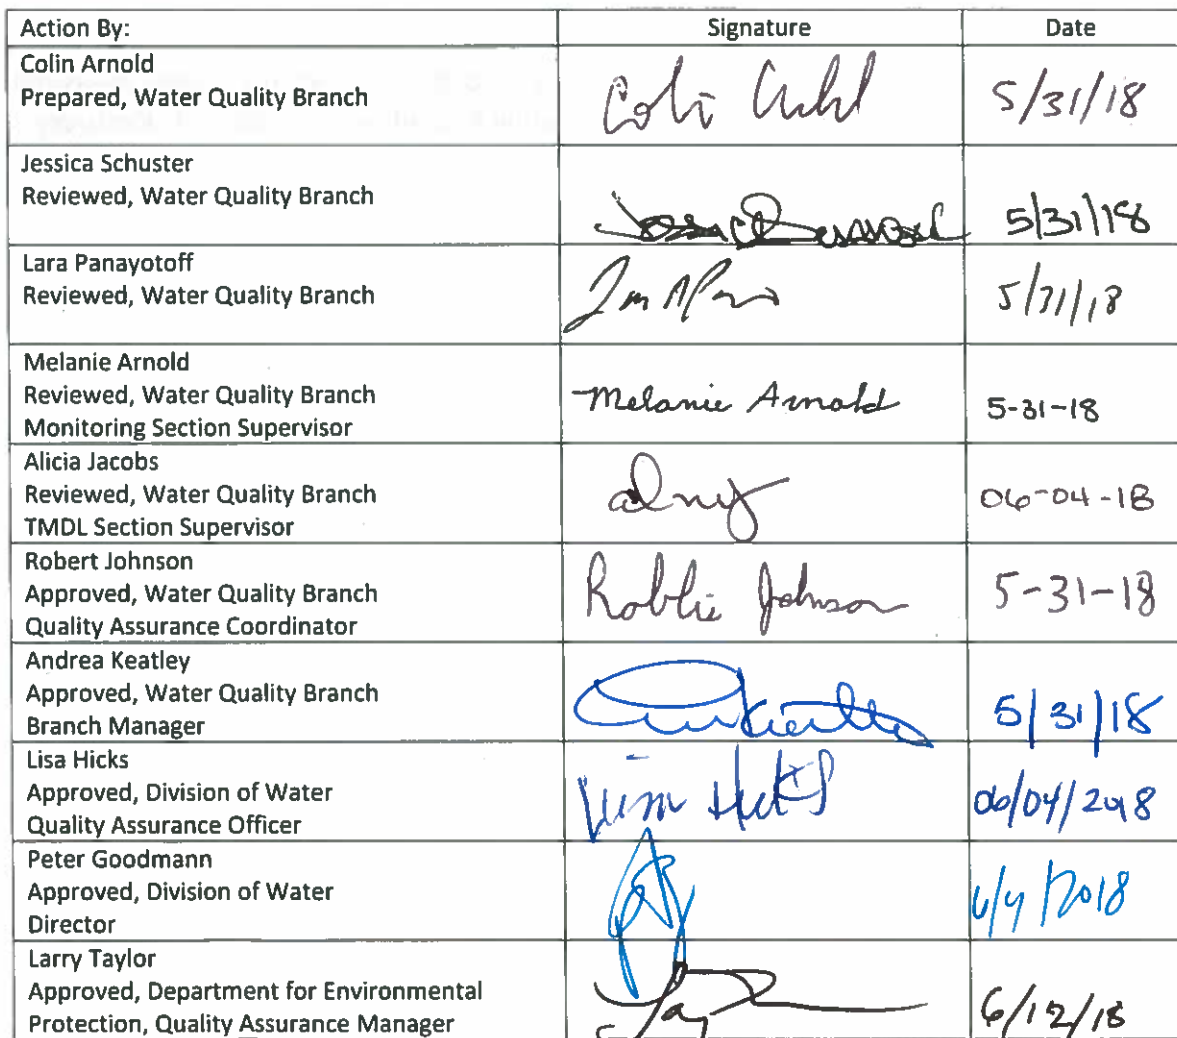 Action By: Signature Date
Colin Arnold
Prepared, Water Quality Branch
5/31/18
Jessica Schuster
Reviewed, Water Quality Branch
5/31/18
Lara Panayotoff
Reviewed, Water Quality Branch
5/31/18
Melanie Arnold
Reviewed, Water Quality Branch
Monitoring Section Supervisor
Melanie Arnold 5-31-18
Alicia Jacobs
Reviewed, Water Quality Branch
TMDL Section Supervisor
06-04-18
Robert Johnson
Approved, Water Quality Branch
Quality Assurance Coordinator
Robbie Johnson 5-31-18
Andrea Keatley
Approved, Water Quality Branch
Branch Manager
5/31/18
Lisa Hicks
Approved, Division of Water
Quality Assurance Officer
06/04/2018
Peter Goodmann
Approved, Division of Water
Director
6/4/2018
Larry Taylor
Approved, Department for Environmental
Protection, Quality Assurance Manager
6/12/18